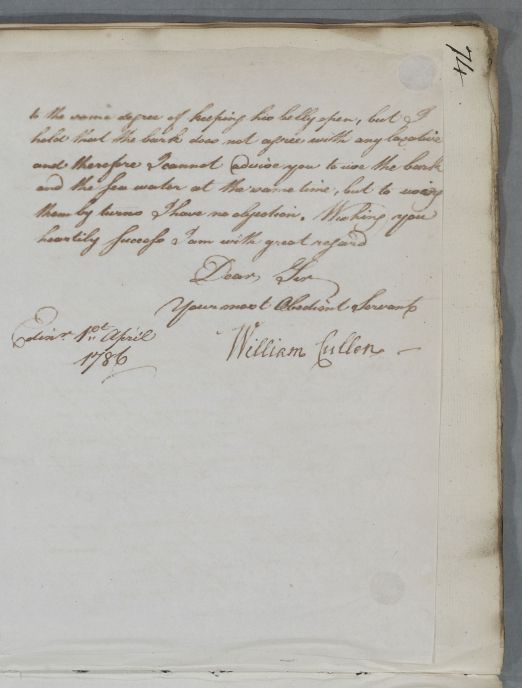 74
to the same degree of keeping his belly open, but I
hold that the bark does not agree with any laxative
and therefore I cannot advise you to use the bark
and the Sea water at the same time, but to using
them by turns I have no objection. Wishing you
heartily Success I am with great regard
Dear Sir
Your most Obedient Servant
Edinr. 1st. April
1786
William Cullen